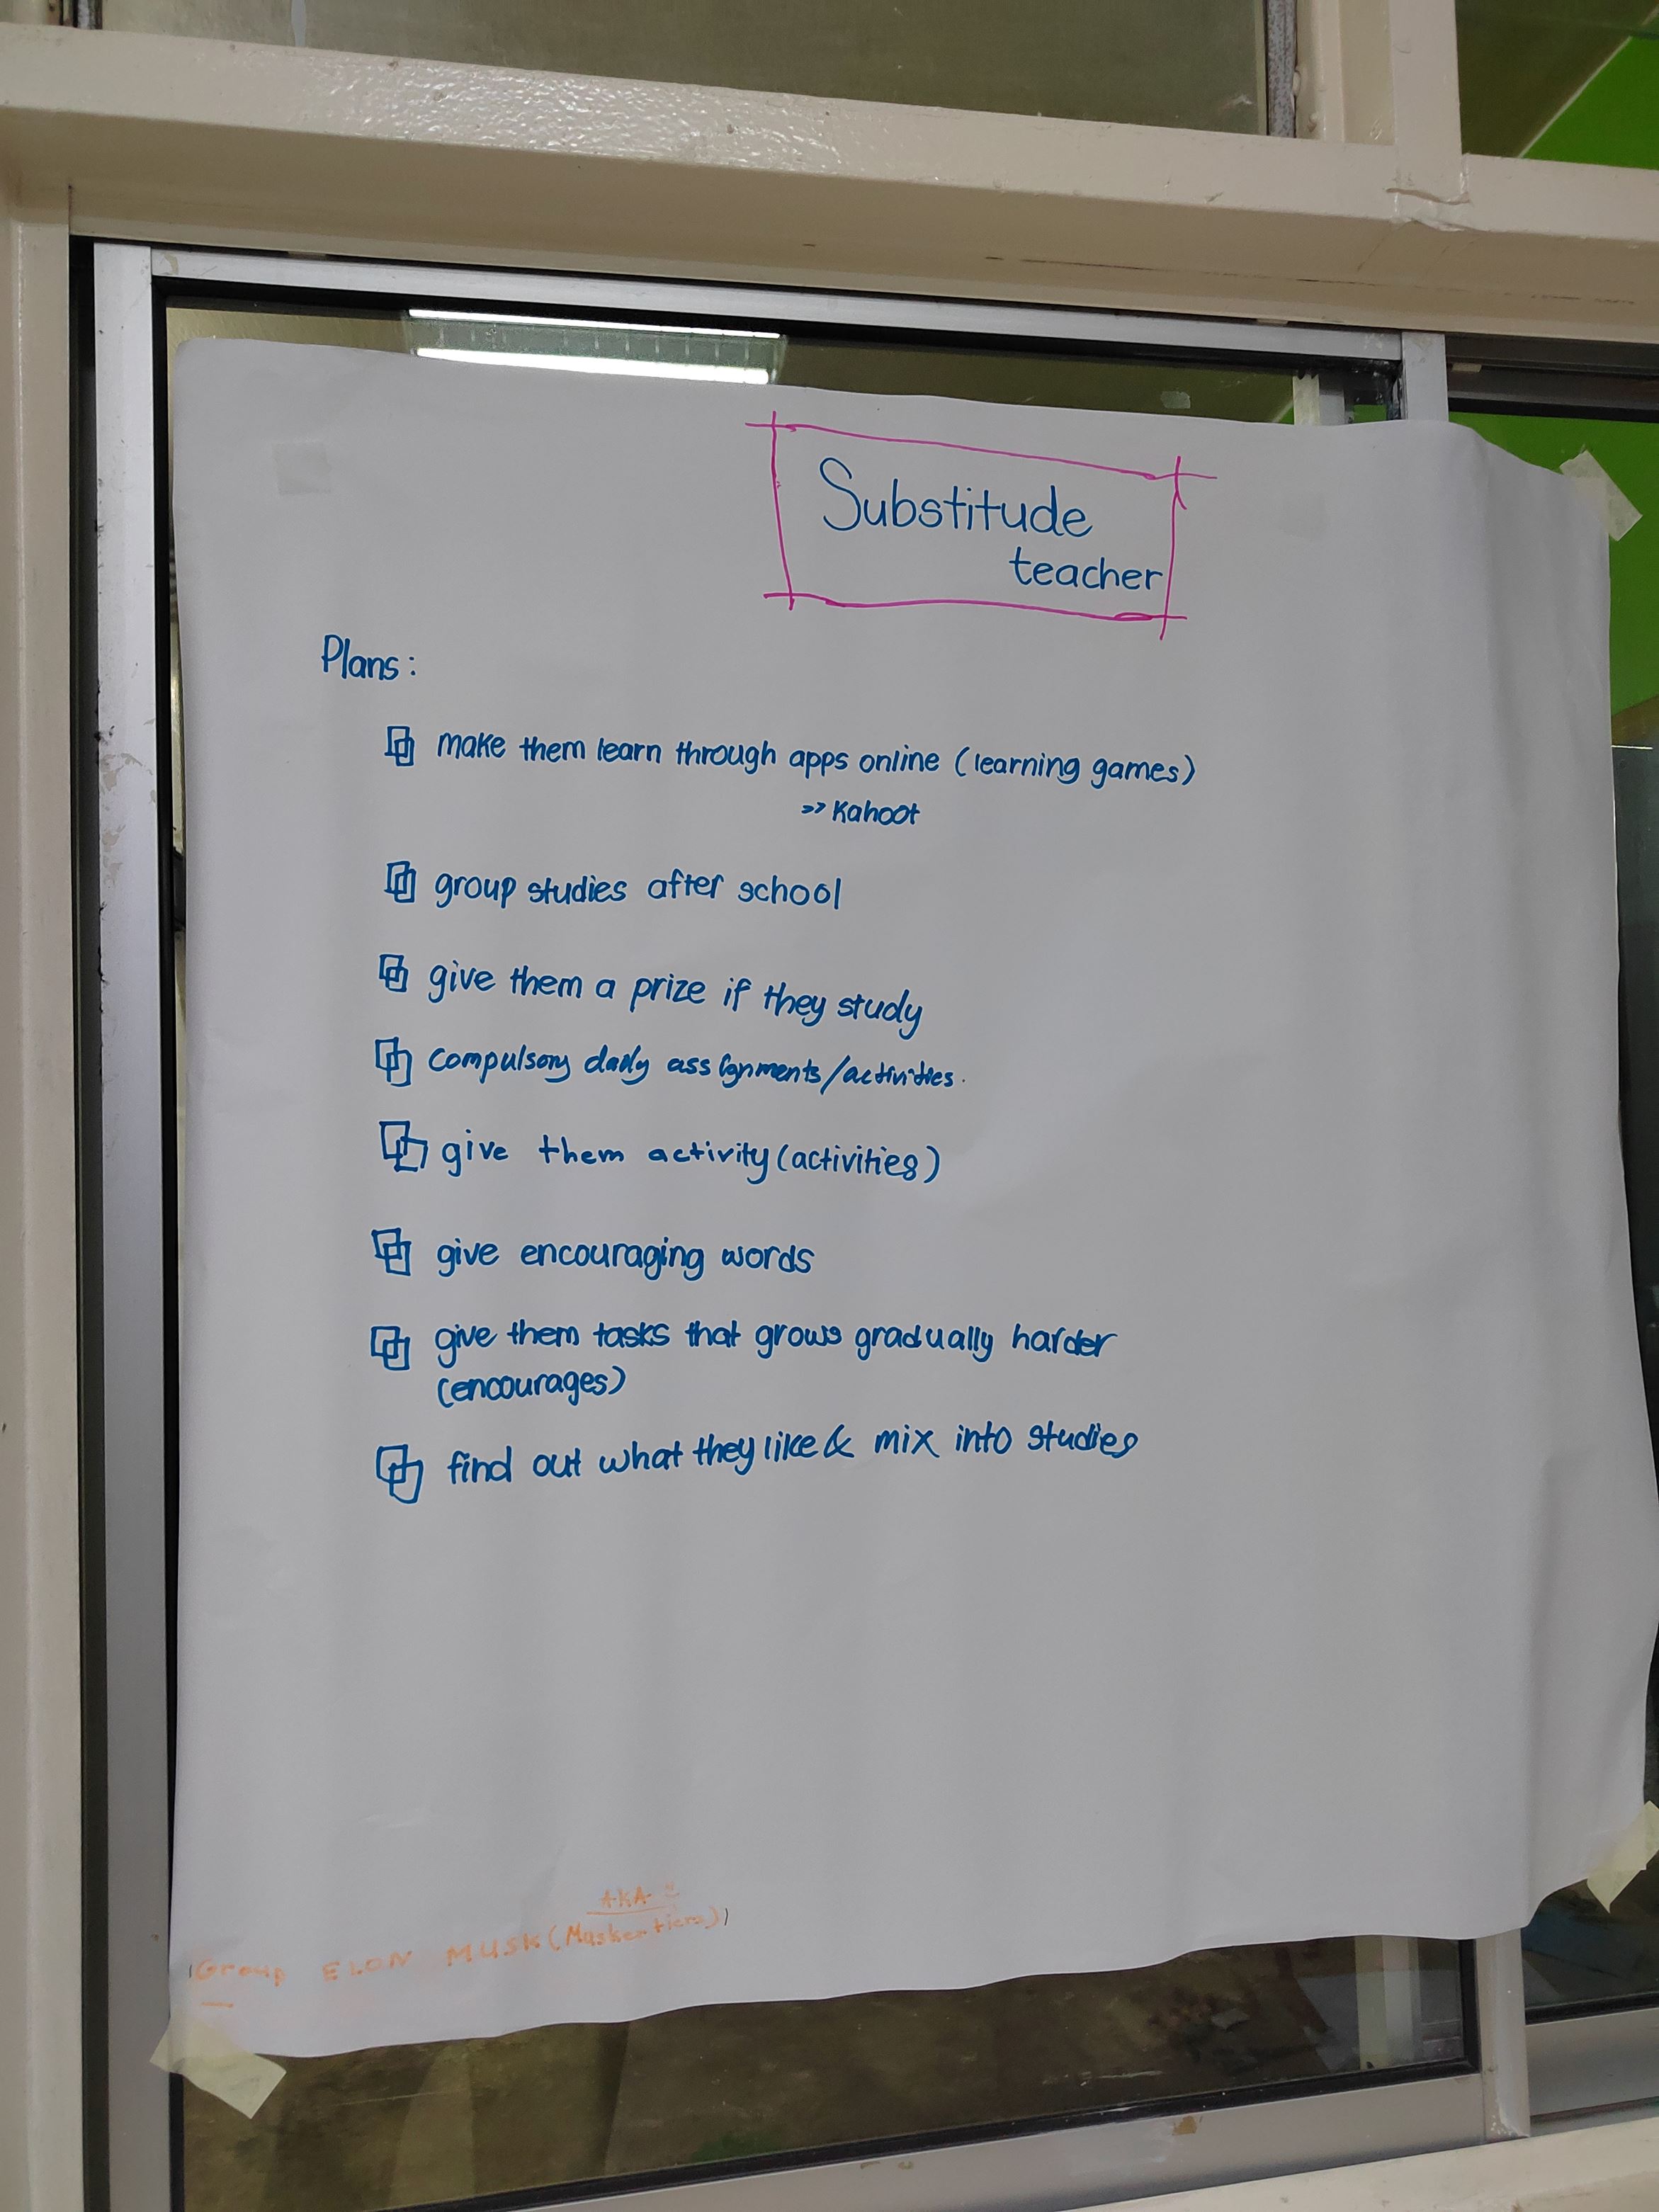 Substitude
teacher
Plans:
make them learn through apps online (learning games)
>> Kahoot
group studies after school
give them a prize if they study
compulsory daily assignments/activities.
give them activity (activities)
give encouraging words
give them tasks that grows gradually harder
(encourages)
find out what they like & mix into studies
AKA
Group ELON MUSK